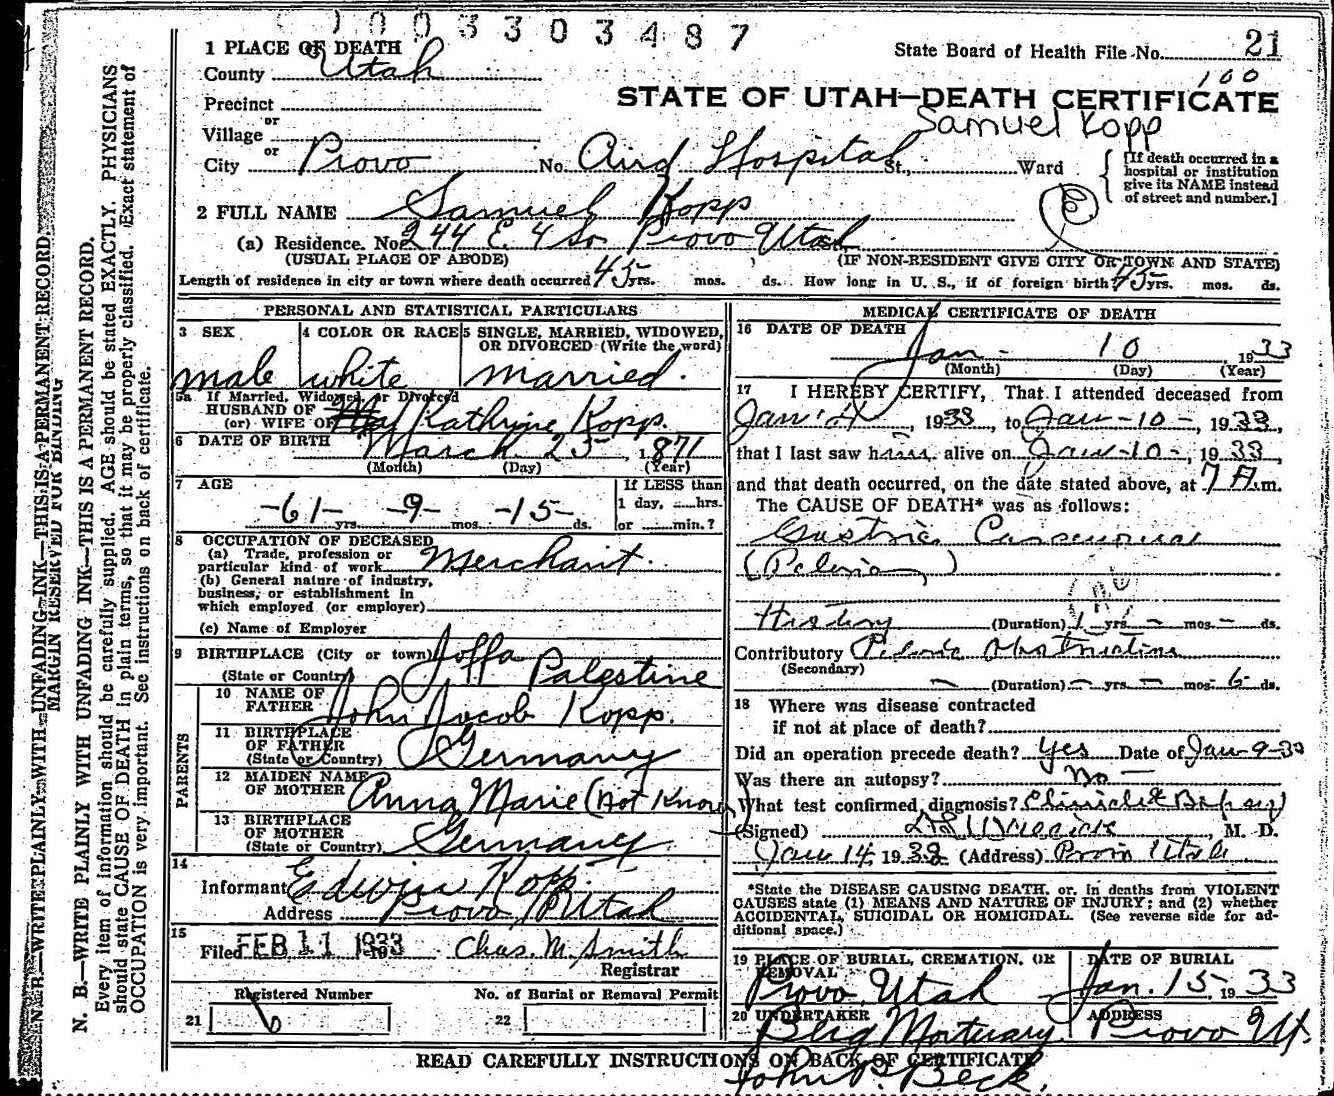 003303487
1 PLACE OF DEATH
State Board of Health File No. 21
County Utah
100
STATE OF UTAH—DEATH CERTIFICATE
Precinct
or
Village
Samuel Kopp
or
City Provo No. Aird Hospital St., Ward
[If death occurred in a hospital or institution give its NAME instead of street and number.]
2 FULL NAME Samuel Kopp
(a) Residence. No. 244 E. 4 So Provo Utah
(USUAL PLACE OF ABODE) (IF NON-RESIDENT GIVE CITY OR TOWN AND STATE)
Length of residence in city or town where death occurred 45 yrs. mos. ds. How long in U. S., if of foreign birth 45 yrs. mos. ds.
PERSONAL AND STATISTICAL PARTICULARS
3 SEX
male
4 COLOR OR RACE
white
5 SINGLE, MARRIED, WIDOWED,
OR DIVORCED (Write the word)
married.
5a If Married, Widowed, or Divorced
HUSBAND OF
(or) WIFE OF Kathrine Kopp.
6 DATE OF BIRTH March 25, 1871
(Month) (Day) (Year)
7 AGE
-61- yrs. -9- mos. -15- ds.
If LESS than
1 day, hrs.
or min.?
8 OCCUPATION OF DECEASED
(a) Trade, profession or
particular kind of work Merchant.
(b) General nature of industry,
business, or establishment in
which employed (or employer)
(c) Name of Employer
9 BIRTHPLACE (City or town) Joffa
(State or Country) Palestine
PARENTS
10 NAME OF
FATHER John Jacob Kopp.
11 BIRTHPLACE
OF FATHER
(State or Country) Germany
12 MAIDEN NAME
OF MOTHER Anna Marie (Not Known)
13 BIRTHPLACE
OF MOTHER
(State or Country) Germany.
14
Informant Edwin Kopp.
Address Provo, Utah
15
Filed FEB 11 1933 Chas. M. Smith
Registrar
Registered Number
21 6
No. of Burial or Removal Permit
22
MEDICAL CERTIFICATE OF DEATH
16 DATE OF DEATH
Jan - 10, 1933
(Month) (Day) (Year)
17 I HEREBY CERTIFY, That I attended deceased from
Jan 4, 1933, to Jan-10-, 1933,
that I last saw him alive on Jan-10-, 1933,
and that death occurred, on the date stated above, at 7 A.m.
The CAUSE OF DEATH* was as follows:
Gastric Carcinoma
History (Duration) 1 yrs. - mos. - ds.
Contributory Pyloric Obstruction
(Secondary)
- (Duration) - yrs. - mos. 6 ds.
18 Where was disease contracted
if not at place of death?
Did an operation precede death? Yes Date of Jan-9-33
Was there an autopsy? No -
What test confirmed diagnosis? Clinical &
(Signed) , M. D.
Jan 14, 1933 (Address) Provo Utah
*State the DISEASE CAUSING DEATH, or, in deaths from VIOLENT
CAUSES state (1) MEANS AND NATURE OF INJURY; and (2) whether
ACCIDENTAL, SUICIDAL OR HOMICIDAL. (See reverse side for ad-
ditional space.)
19 PLACE OF BURIAL, CREMATION, OR
REMOVAL
Provo, Utah
DATE OF BURIAL
Jan. 15, 1933
20 UNDERTAKER
Berg Mortuary.
ADDRESS
Provo Ut.
READ CAREFULLY INSTRUCTIONS ON BACK OF CERTIFICATE
John P. Beck.
N. B.—WRITE PLAINLY—WITH UNFADING INK—THIS IS A PERMANENT RECORD
MARGIN RESERVED FOR BINDING
N. B.—WRITE PLAINLY WITH UNFADING INK—THIS IS A PERMANENT RECORD.
Every item of information should be carefully supplied. AGE should be stated EXACTLY. PHYSICIANS
should state CAUSE OF DEATH in plain terms, so that it may be properly classified. Exact statement of
OCCUPATION is very important. See instructions on back of certificate.